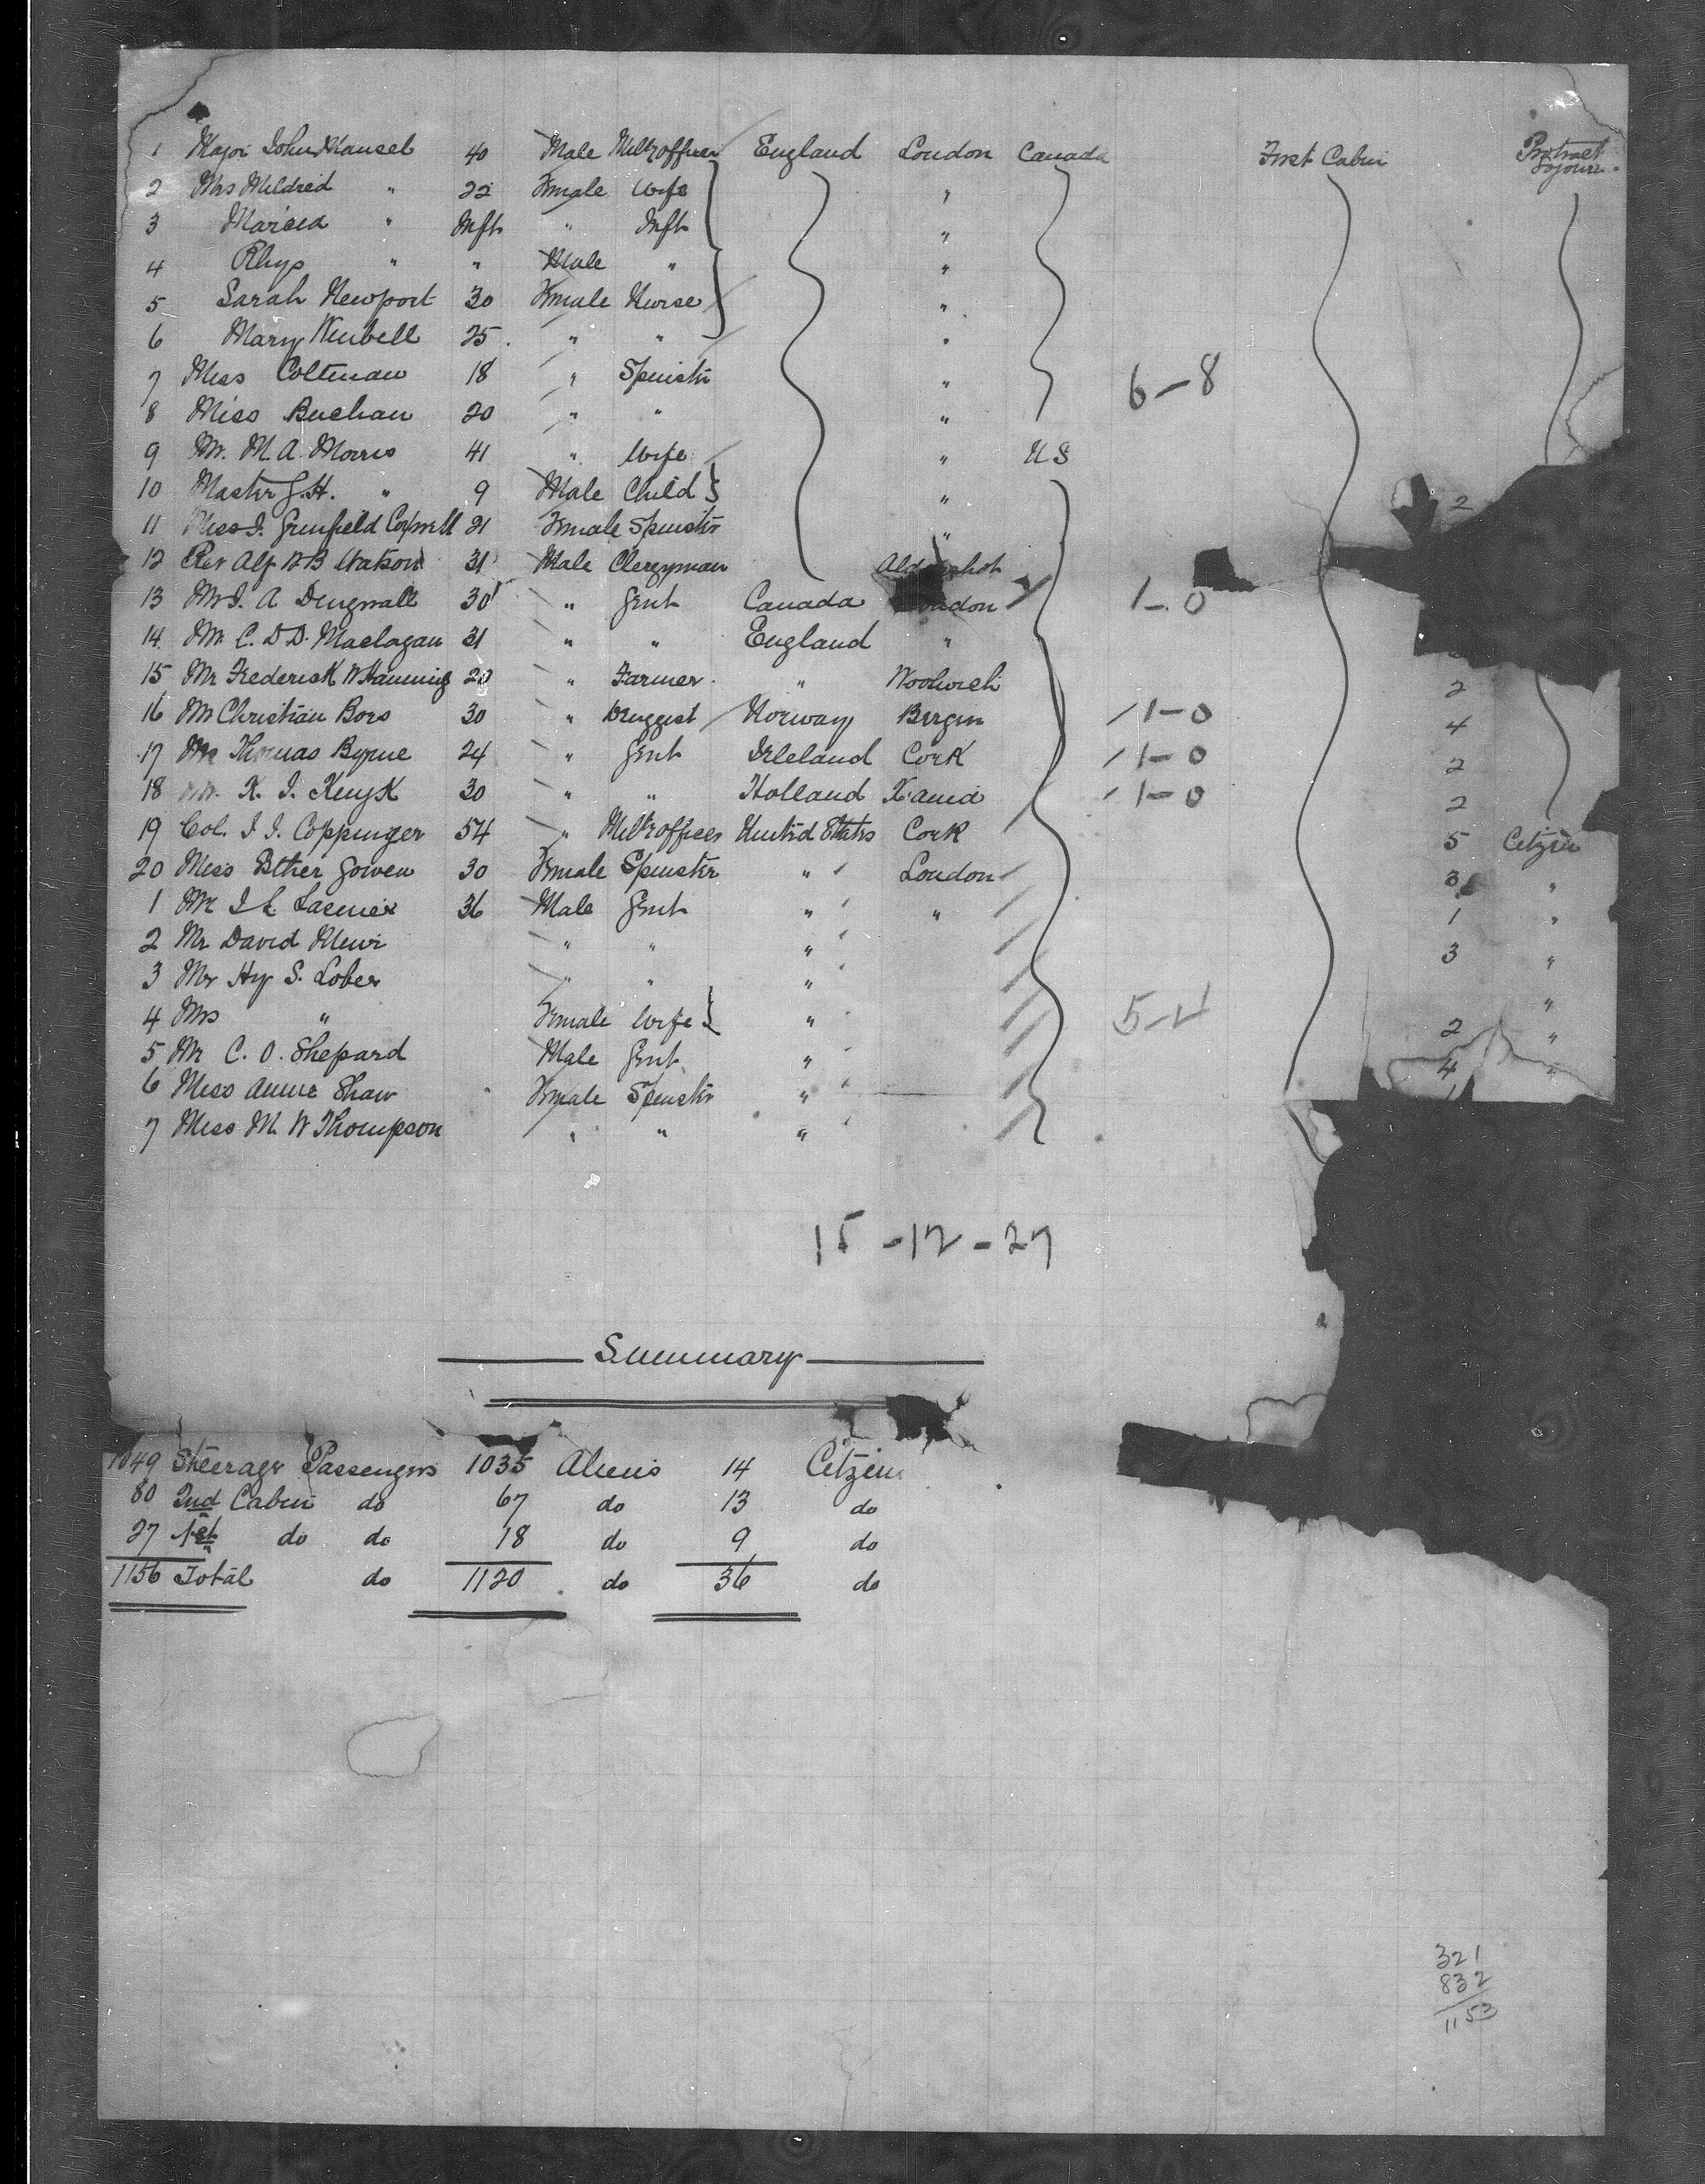 1 Major John Mansel 40 Male Miltry officer England London Canada First Cabin Protract Sojourn.
2 Mrs Mildred " 22 Female Wife "
3 " Inft " Inft "
4 Rhys " " Male " "
5 Sarah Newport 30 Female Nurse "
6 Mary 25 " " "
7 Miss Coltman 18 " Spinstr " 6-8
8 Miss Buchan 20 " " "
9 M. A. Morris 41 " Wife " U S
10 Master J. H. " 9 Male Child " 2
11 Miss J. Grenfield 21 Female Spinstr "
12 Rev Alf Watson 31 Male Clergyman
13 Mr J. A Dingwall 30 " Gent Canada London 1-0
14 Mr C. D D. Maclagan 31 " " England "
15 Mr Frederick W 20 " Farmer " Woolwich 2
16 Mr Christian Bors 30 " Druggist Norway Bergen 1-0 4
17 Mr Thomas Byrne 24 " Gent Ireland Cork 1-0 2
18 K. J. 30 " " Holland 1-0 2
19 Col. J J. Coppinger 54 " Miltr officer United States Cork 5 Citzen
20 Miss Esther Gowen 30 Female Spinstr " London 3 "
1 Mr J L 36 Male Gent " " 1 "
2 Mr David " " " 3 "
3 Mr Hy S. Lober " " " "
4 Mrs " Female Wife " 2 "
5 Mr C. O. Shepard Male Gent " 4 "
6 Miss Annie Shaw Female Spinstr "
7 Miss M. W Thompson " " "
15-12-27
Summary
1049 Steerage Passengers 1035 Aliens 14 Citzens
80 2nd Cabin do 67 do 13 do
27 1st do do 18 do 9 do
1156 Total do 1120 do 36 do
321
832
1153